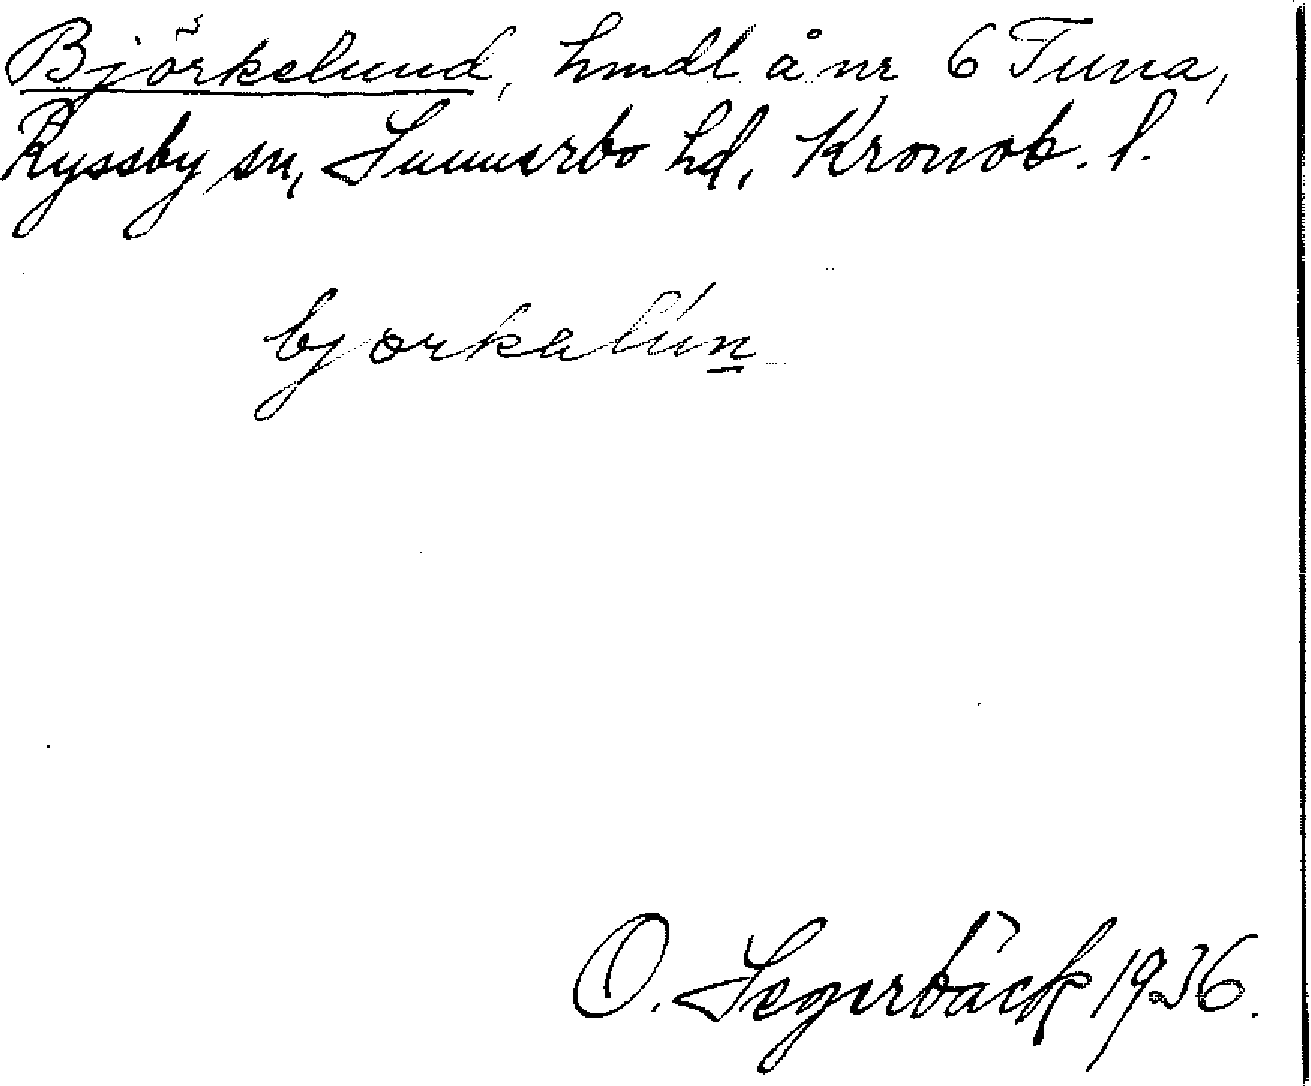 Björkelund, hmdl å nr 6 Tuna,
Ryssby sn, Sunnerbo hd, Kronob. l.
bjorkalun
O. Segerbäck 1936.